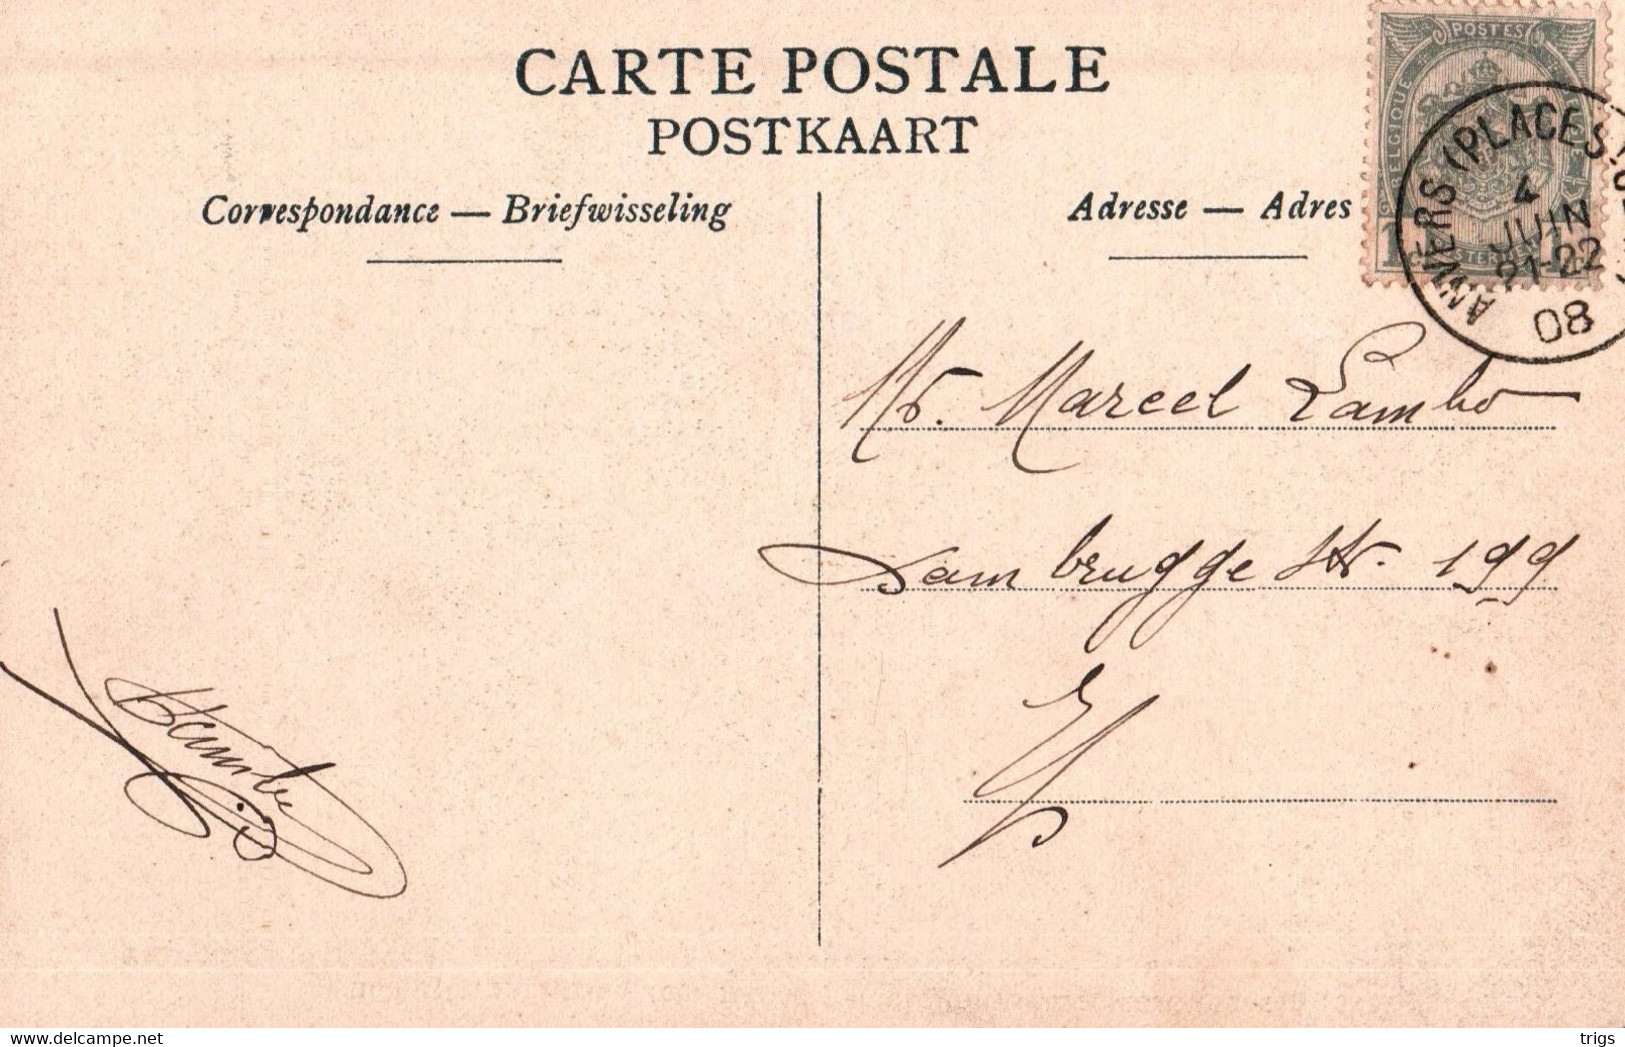 CARTE POSTALE
POSTKAART
Correspondance — Briefwisseling
Adresse — Adres
POSTES
BELGIQUE
1
1
ANVERS (PLACE S.
4
JUIN
21-22
08
Mr. Marcel Lambo
Dambrugge Str. 199
delcampe.net
trigs